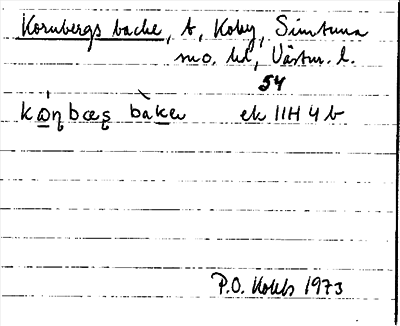 Kornbergs backe, t, Koby, Simtuna
sn o. hd, Västm. l.
54
kɷ̀ɳbæʂ bàkeɹ ek 11H 4 b
P.O. Kolsb 1973